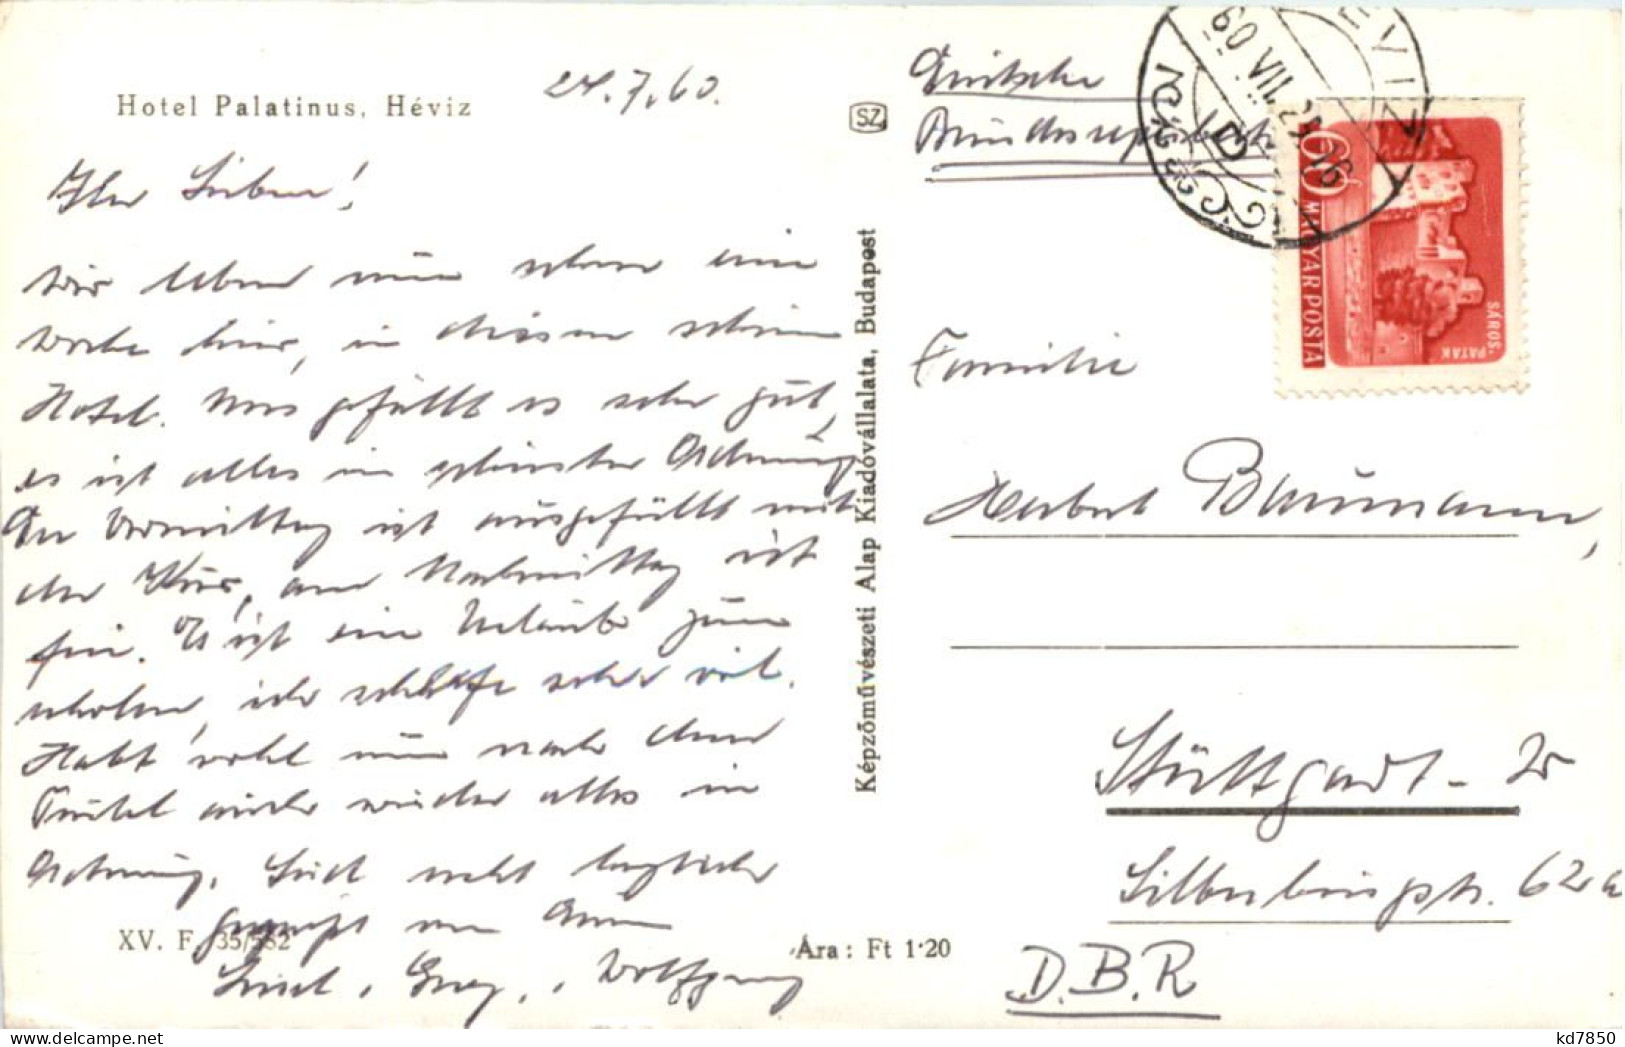 Hotel Palatinus, Héviz
24.7.60.
Ihr Lieben!
Wir leben nun schon eine
Woche hier, in diesem schönen
Hotel. Uns gefällt es sehr gut,
es ist alles in schönster Ordnung.
Der Vormittag ist ausgefüllt mit
der Kur, am Nachmittag ist
frei. Es ist ein Urlaub zum
erholen, ich schlafe sehr viel.
Habt wohl nun nach dem
Trubel auch wieder alles in
Ordnung. Seid recht herzlich
gegrüßt von Anni
Wolfgang
XV. F. 35/582
Ára: Ft 1·20
SZ
Képzőművészeti Alap Kiadóvállalata, Budapest
Deutsche
Bundesrepublik
HÉVIZ
60 VII. 25. 16
60
MAGYAR POSTA
SÁROS.
PATAK
Familie
Herbert Baumann,
Stuttgart - W
Silberburgstr. 62a
D.B.R
kd7850